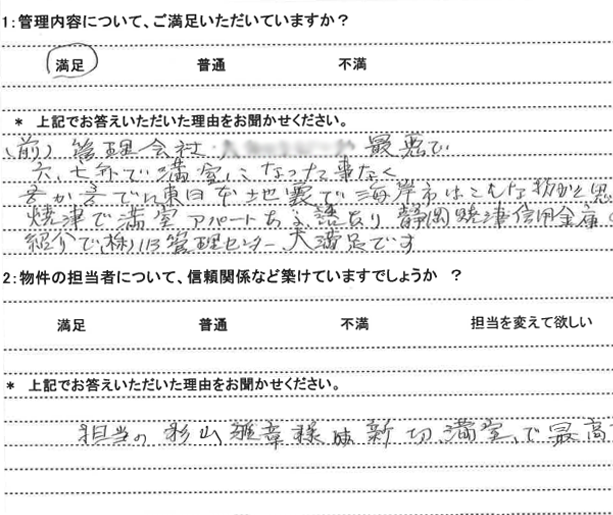 1:管理内容について、ご満足いただいていますか?
満足 普通 不満
* 上記でお答えいただいた理由をお聞かせください。
(前)管理会社 最悪で
六、七年で満室になった事なく
東日本地震で海岸市はこんな物かと思
焼津で満室アパートある話あり 静岡焼津信用金庫の
紹介で(株) 管理センター、大満足です
2:物件の担当者について、信頼関係など築けていますでしょうか ?
満足 普通 不満 担当を変えて欲しい
* 上記でお答えいただいた理由をお聞かせください。
担当の 影山雅章様は 新切、満室、で最高